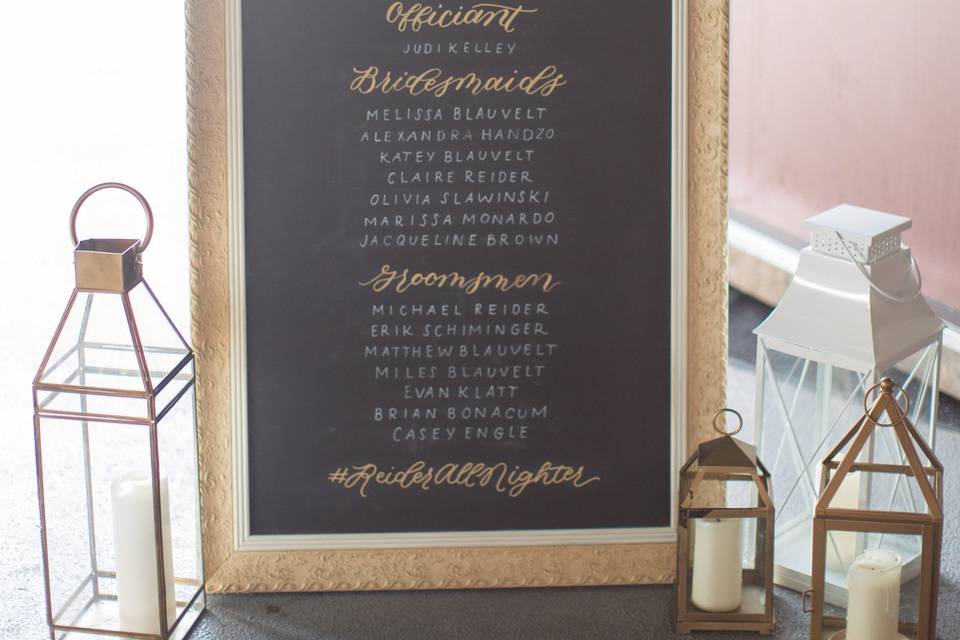 Officiant
JUDI KELLEY
Bridesmaids
MELISSA BLAUVELT
ALEXANDRA HANDZO
KATEY BLAUVELT
CLAIRE REIDER
OLIVIA SLAWINSKI
MARISSA MONARDO
JACQUELINE BROWN
Groomsmen
MICHAEL REIDER
ERIK SCHIMINGER
MATTHEW BLAUVELT
MILES BLAUVELT
EVAN KLATT
BRIAN BONACUM
CASEY ENGLE
#ReiderAllNighter